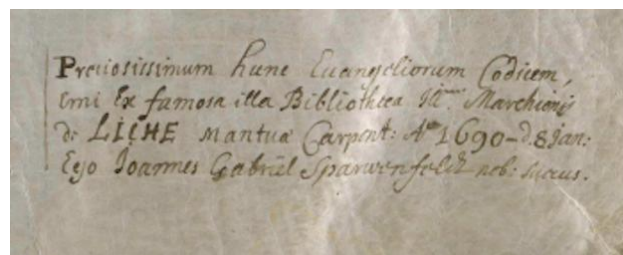 Preciosissimum hunc Euangeliorum Codicem,
Emi Ex famosa illa Bibliotheca Ill.mi Marchionis
d: LICHE Mantuæ Carpent: Aº 1690 - d. 8 Jan:
Ego Joannes Gabriel Sparwenfeldt nob: suecus.